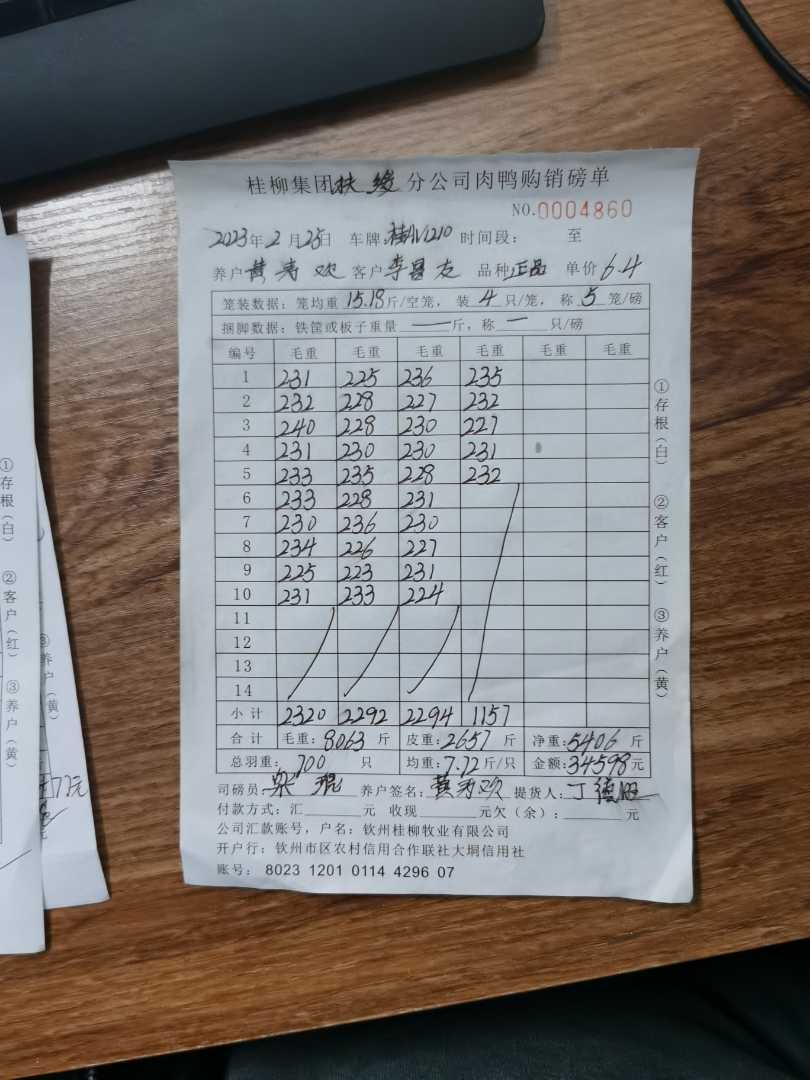 桂柳集团扶绥分公司肉鸭购销磅单
NO.0004860
2023年2月25日 车牌:桂AV1210 时间段: 至
养户黄秀欢 客户李昌友 品种正品 单价6.4
笼装数据: 笼均重15.18斤/空笼, 装4只/笼, 称5笼/磅
捆脚数据: 铁筐或板子重量 — 斤, 称 — 只/磅
编号 毛重 毛重 毛重 毛重 毛重 毛重
1 231 225 236 235
2 232 228 227 232
3 240 228 230 227
4 231 230 230 231
5 233 235 228 232
6 233 228 231
7 230 236 230
8 234 226 227
9 225 223 231
10 231 233 224
11
12
13
14
小计 2320 2292 2294 1157
合计 毛重:8063斤 皮重:2657斤 净重:5406斤
总羽重: 700 只 均重:7.72斤/只 金额:34598元
司磅员: 养户签名: 黄秀欢 提货人: 丁德
付款方式: 汇 元 收现 元欠(余): 元
公司汇款账号, 户名: 钦州桂柳牧业有限公司
开户行: 钦州市区农村信用合作联社大垌信用社
账号: 8023 1201 0114 4296 07
①存根(白) ②客户(红) ③养户(黄)
①存根(白) ②客户(红) ③养户(黄)
③养户(黄)
元